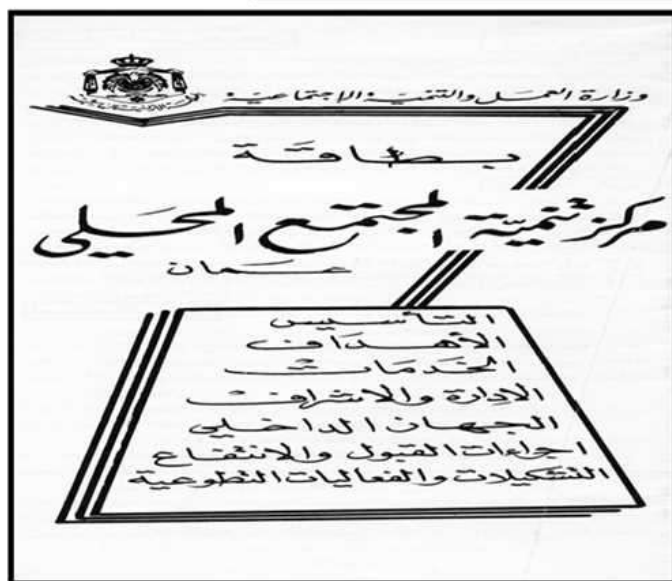 وزارة العمل والتنمية الإجتماعية
بطاقة
مركز تنمية المجتمع المحلي
عمان
التأسيس
الأهداف
الخدمات
الإدارة والاشراف
الجهاز الداخلي
اجراءات القبول والانتفاع
التشكيلات والفعاليات التطوعية